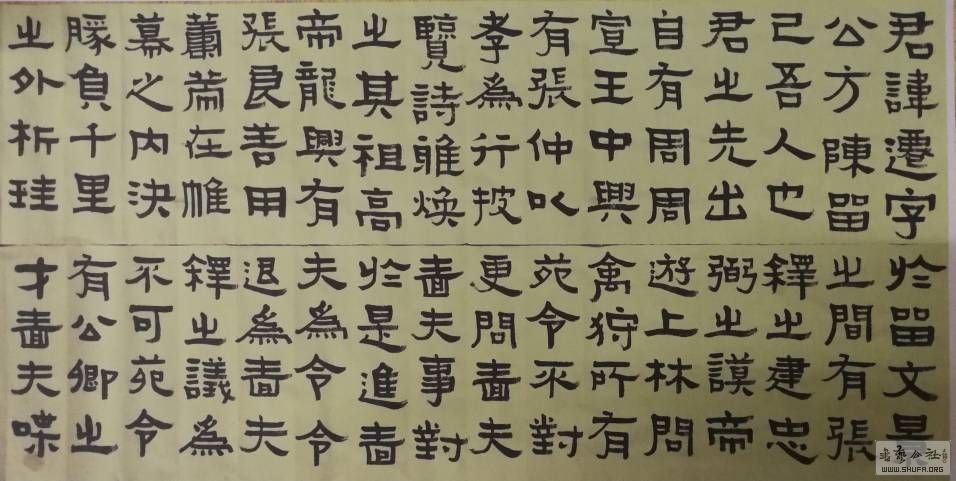 君諱遷字
公方陳留
己吾人也
君之先出
自有周周
宣王中興
有張仲以
孝為行披
覽詩雅煥
之其祖高
帝龍興有
張良善用
在帷
幕之內決
勝負千里
之外析珪
於留文景
之間有張
釋之建忠
弼之謨帝
遊上林問
禽狩所有
苑令不對
更問嗇夫
嗇夫事對
於是進嗇
夫為令令
退為嗇夫
釋之議為
不可苑令
有公卿之
才嗇夫喋
書藝公社
WWW.SHUFA.ORG